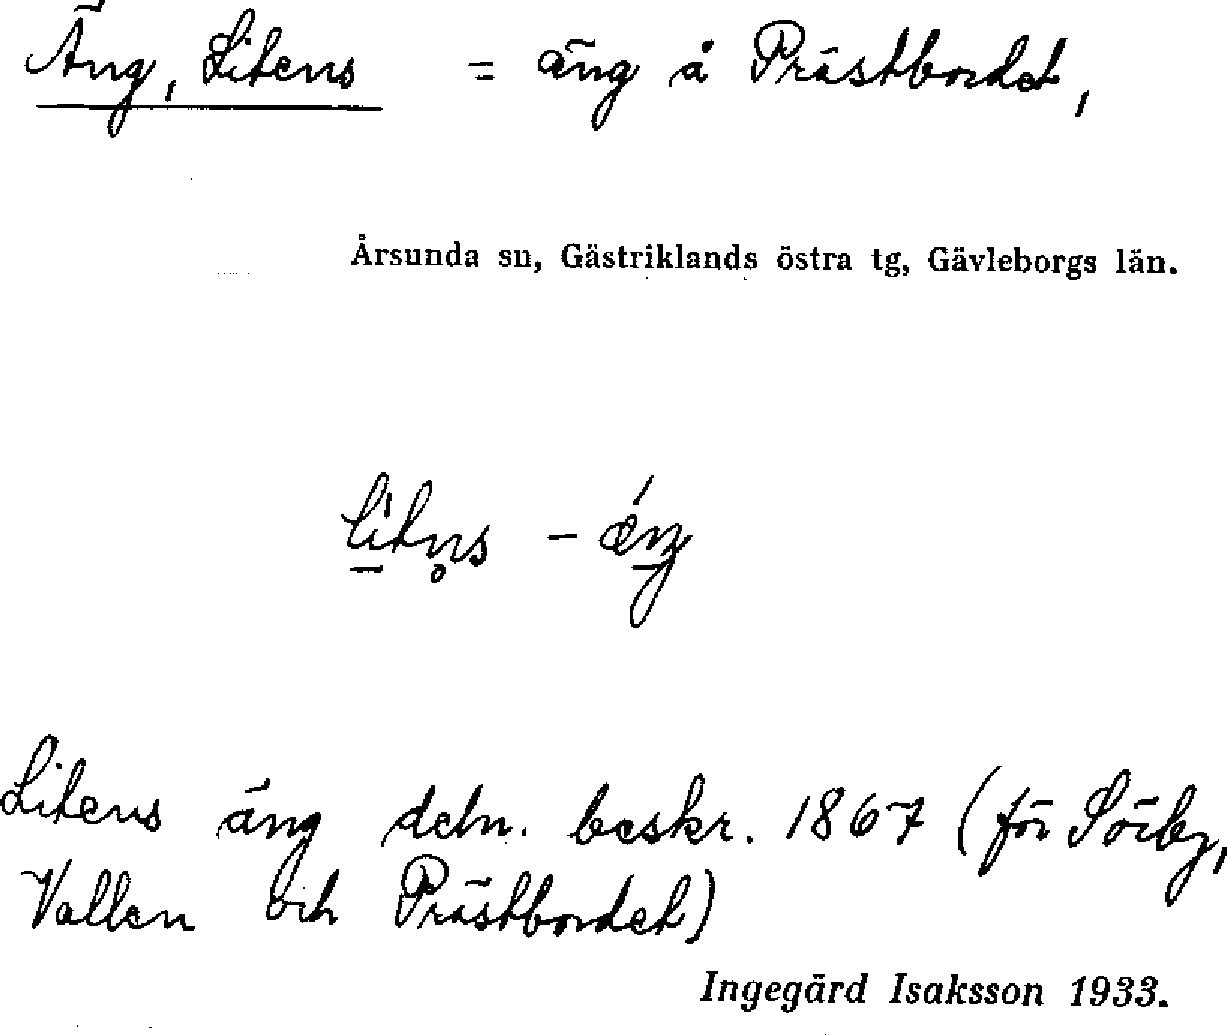 Äng, Litens = äng å Prästbordet,
Årsunda sn, Gästriklands östra tg, Gävleborgs län.
Litens äng deln. beskr. 1867 (för Sörby,
Vallen och Prästbordet)
Ingegärd Isaksson 1933.